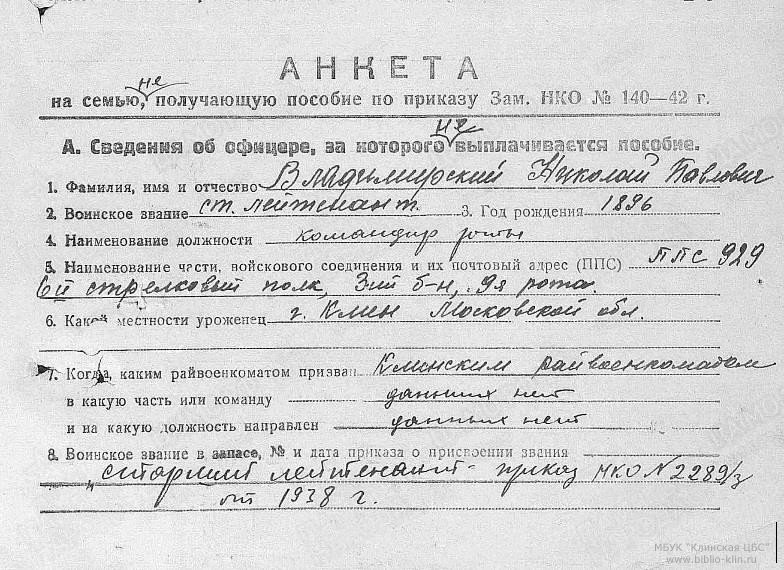 АНКЕТА
не
на семью, получающую пособие по приказу Зам. НКО № 140—42 г.
не
А. Сведения об офицере, за которого выплачивается пособие.
1. Фамилия, имя и отчество Владимирский Николай Павлович
2. Воинское звание ст. лейтенант. 3. Год рождения 1896
4. Наименование должности командир роты
5. Наименование части, войскового соединения и их почтовый адрес (ППС) ППС 929
6й стрелковый полк, 3ий б-н, 9я рота.
6. Какой местности уроженец г. Клин Московской обл.
7. Когда, каким райвоенкоматом призван Клинским райвоенкоматом
в какую часть или команду данных нет
и на какую должность направлен данных нет
8. Воинское звание в запасе, № и дата приказа о присвоении звания
„старший лейтенант" приказ НКО N 2289/з
от 1938 г.
МБУК "Клинская ЦБС"
www.biblio-klin.ru